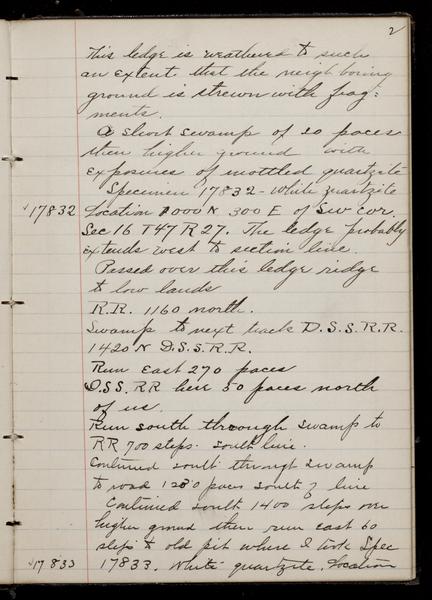 2
This ledge is weathered to such
an extent that the neighboring
ground is strewn with frag=
ments.
A short swamp of 20 paces
then higher ground with
exposures of mottled quartzite
Specimen 17832 - White quartzite
√17832 Location 1000 N 300 E of SW cor.
Sec 16 T47 R27. The ledge probably
extends west to section line.
Passed over this ledge ridge
to low lands
R.R. 1160 north.
Swamp to next track D.S.S.R.R.
1420 N D.S.S.R.R.
Run East 270 paces
D.S.S. RR here 50 paces north
of us.
Run south through swamp to
RR 700 steps. south line.
Continued south through swamp
to road 1280 paces south of line
Continued south 1400 steps over
higher ground then run east 60
steps to old pit where I took Spec
√17833 17833. White quartzite. Location